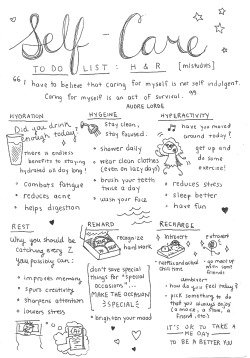 Self-Care
TO DO LIST: H & R [mistudies]
"I have to believe that caring for myself is not self indulgent.
Caring for myself is an act of survival."
AUDRE LORDE
HYDRATION
Did you drink
enough today?
There is endless
benefits to staying
hydrated all day long!
+ combats fatigue
+ reduces acne
+ helps digestion
HYGEINE
stay clean,
stay focused.
+ shower daily
+ wear clean clothes
(even on lazy days)
+ brush your teeth
twice a day
+ wash your face
HYPERACTIVITY
have you moved
around today?
get up and
do some
exercise!
+ reduces stress
+ sleep better
+ have fun
REST
Why you should be
catching every Z
you possibly can:
+ improves memory
+ spurs creativity
+ sharpens attention
+ lowers stress
REWARD
recognize
hard work
don't save special
things for "special
occasions"...
MAKE THE OCCASION
SPECIAL
+ brighten your mood
RECHARGE
introvert
extrovert
+ Netflix and a
chill time
+ go meet up
with some
friends
ambivert
+ how do you feel today?
+ pick something to do
that you always enjoy
IT'S OK TO TAKE A
ME DAY
TO BE A BETTER YOU